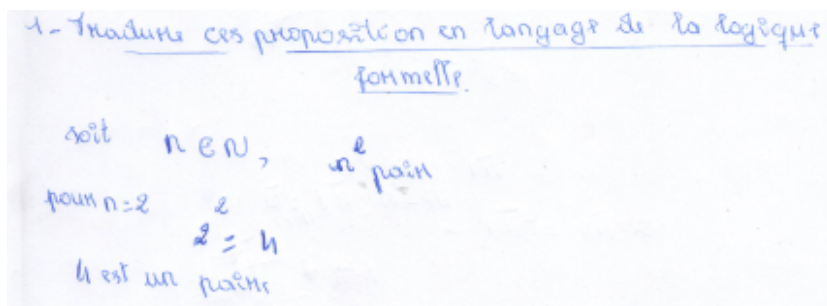 1- Traduire ces proposition en langage de la logique
formelle.
soit n ∈ N, n² pair
pour n=2 2² = 4
4 est un pair